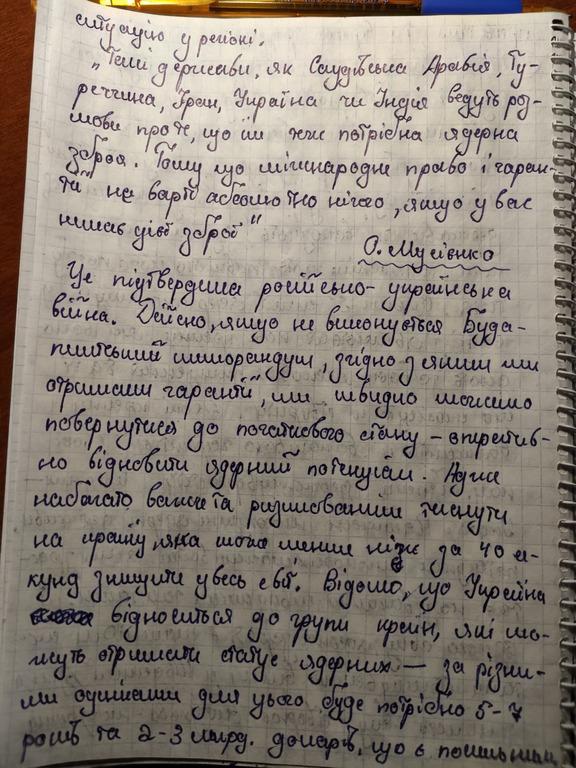 ситуацію у регіоні.
„Такі держави, як Саудівська Аравія, Ту-
реччина, Іран, Україна чи Індія ведуть роз-
мови про те, що їм теж потрібна ядерна
зброя. Тому що міжнародне право і гаран-
тії не варті абсолютно нічого, якщо у вас
немає цієї зброї"
О. Мусієнко
Це підтвердила російсько-українська
війна. Дійсно, якщо не виконується Буда-
пештський меморандум, згідно з яким ми
отримали „гарантії", ми швидко можемо
повернутися до початкового стану – оператив-
но відновити ядерний потенціал. Адже
набагато важче та ризикованіше тиснути
на країну, яка може менше ніж за 40 се-
кунд знищити увесь світ. Відомо, що Україна
відноситься до групи країн, які мо-
жуть отримати статус ядерних — за різни-
ми оцінками для цього буде потрібно 5-7
років та 2-3 млрд. доларів, що є посильним